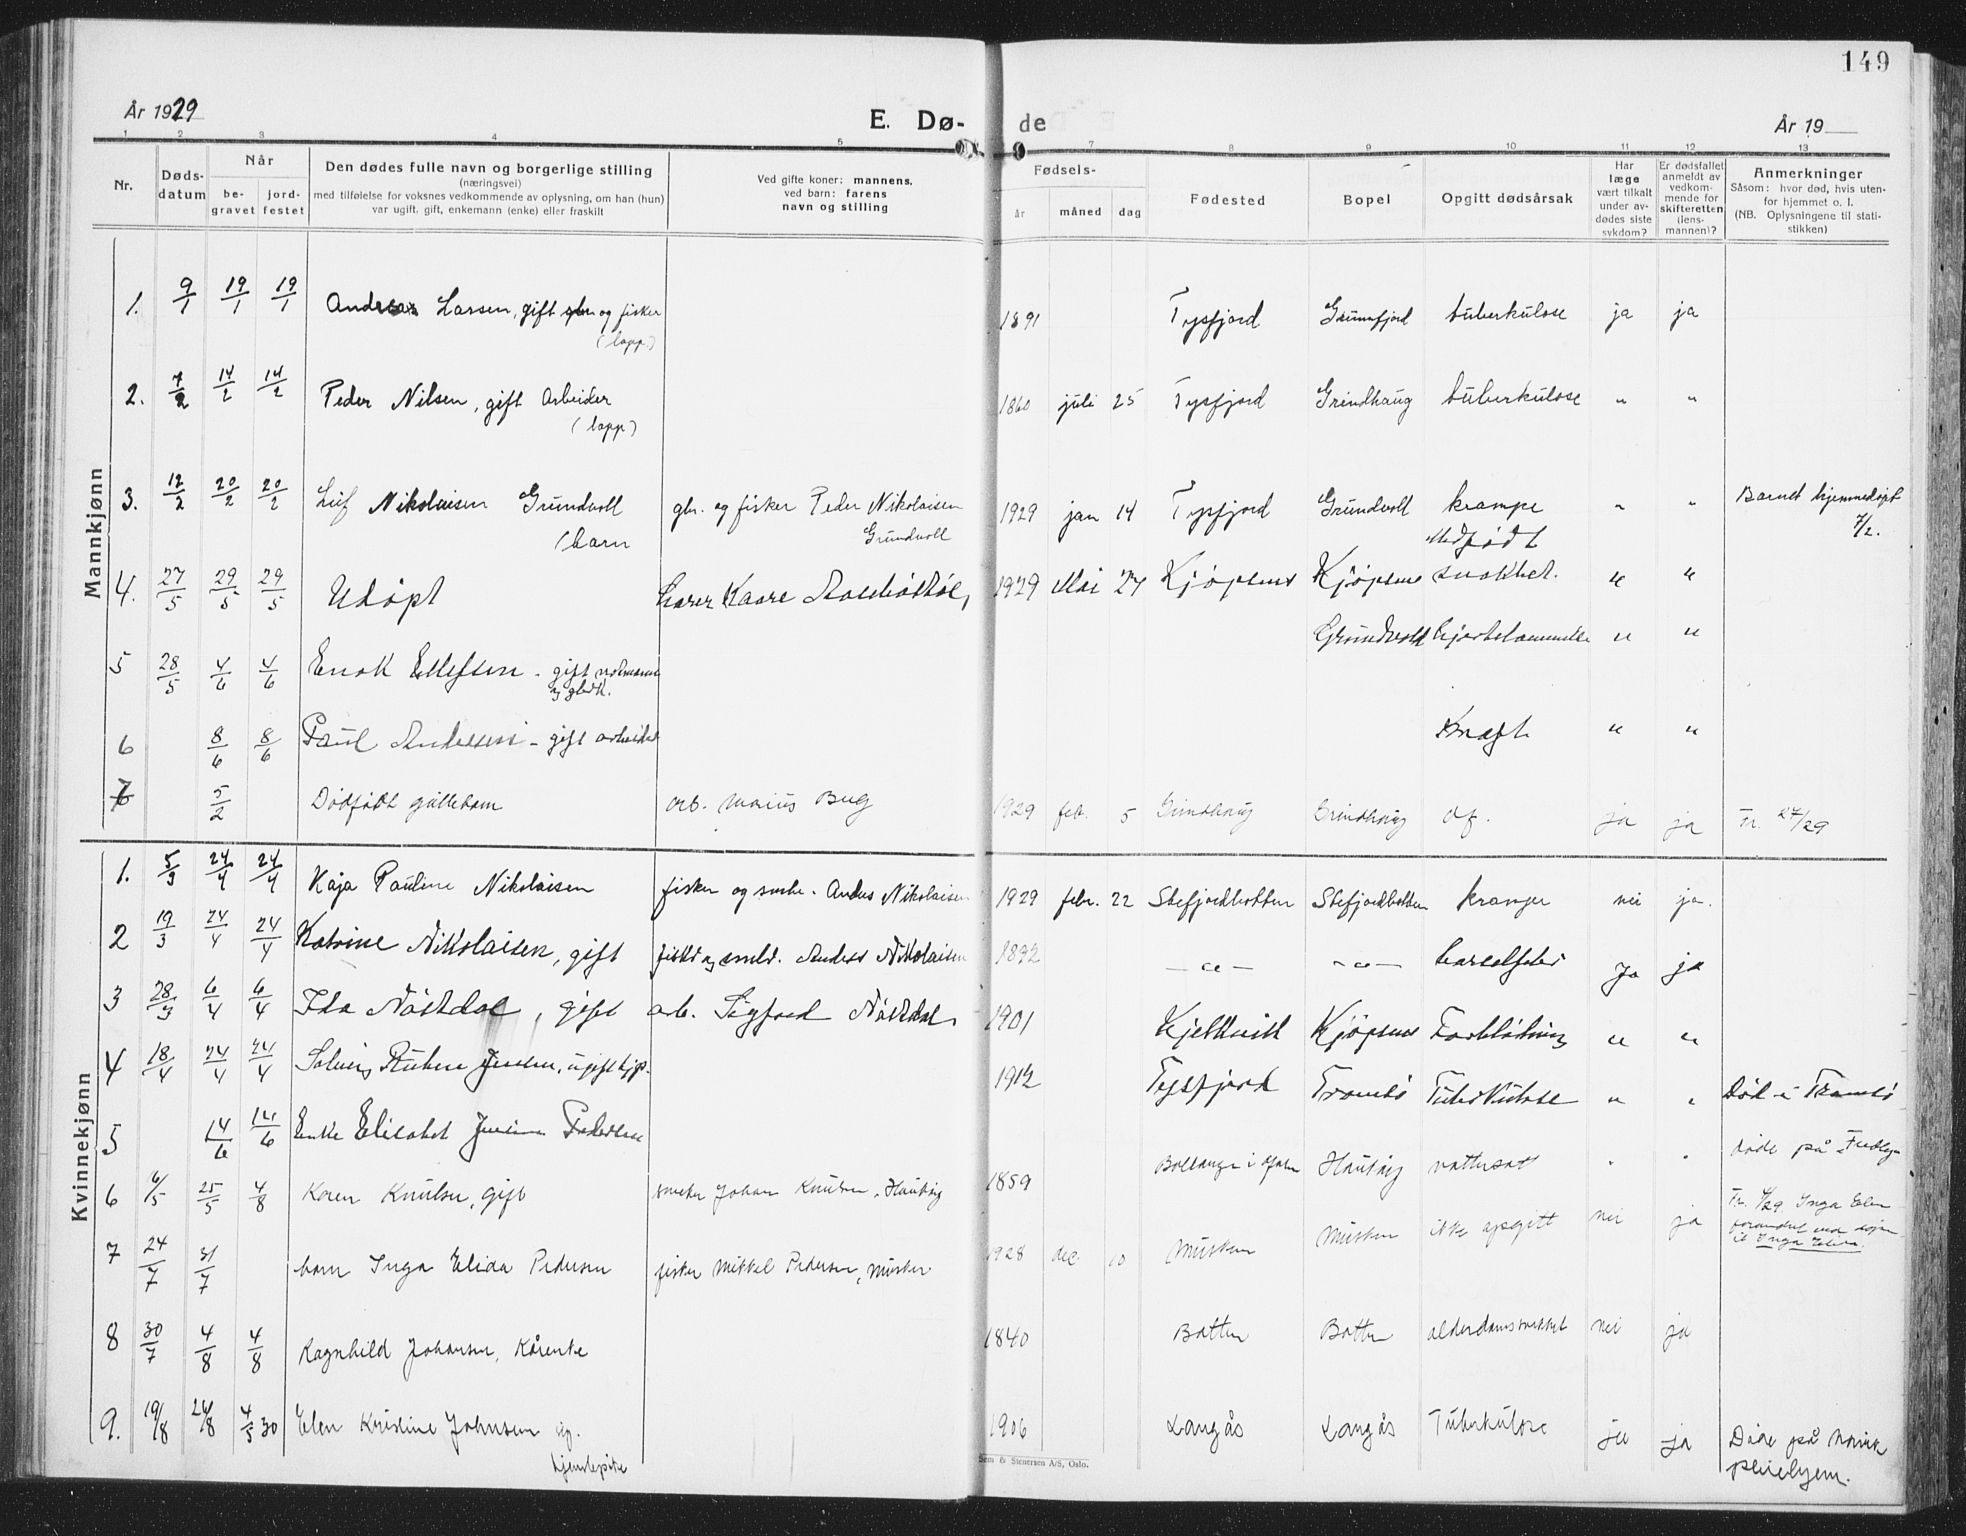 149
År 1929
E. Dø-
de
År 19
1 2 3 4 5 7 8 9 10 11 12 13
Nr.
Døds-
datum
Når
be-
gravet
jord-
festet
Den dødes fulle navn og borgerlige stilling
(næringsvei)
med tilføielse for voksnes vedkommende av oplysning, om han (hun)
var ugift, gift, enkemann (enke) eller fraskilt
Ved gifte koner: mannens,
ved barn: farens
navn og stilling
Fødsels-
år
måned
dag
Fødested
Bopel
Opgitt dødsårsak
Har
læge
vært tilkalt
under av-
dødes siste
sykdom?
Er dødsfallet
anmeldt av
vedkom-
mende for
skifteretten
(lens-
mannen)?
Anmerkninger
Såsom: hvor død, hvis uten-
for hjemmet o. l.
(NB. Oplysningene til stati-
stikken)
Mannkjønn
1. 9/1 19/1 19/1 Andreas Larsen, gift og fisker 1891 Tysfjord Grunnfjord tuberkulose ja ja
(lapp)
2. 7/2 14/2 14/2 Peder Nilsen, gift Arbeider 1860 juli 25 Tysfjord Grindhaug tuberkulose " "
(lapp)
3. 12/2 20/2 20/2 Leif Nikolaisen Grundvoll gbr. og fisker Peder Nikolaisen 1929 jan 14 Tysfjord Grundvoll krampe " " Barnet hjemmedøpt
(barn Grundvoll 7/2.
Medfødt
4. 27/5 29/5 29/5 Udøpt Lærer Kaare 1929 Mai 27 Kjøpsnes Kjøpsnes svakhet. " "
Grundvold hjertelammelse " "
5 28/5 4/6 4/6 Enok Ellefsen - gift
6 8/6 8/6 Paul Andersen - gift arbeider " "
7 5/2 Dødfødt guttebarn arb. Marius Bug 1929 feb. 5 Grindhaug Grindhaug df. ja ja Tr. 27/29
Kvinnekjønn
1. 5/3 24/4 24/4 Kaja Pauline Nikolaisen fisker og smbr. Anders Nikolaisen 1929 febr. 22 Stefjordbotten Stefjordbotten nei ja.
2 19/3 24/4 24/4 Katrine Nikolaisen, gift fisker og smbr. Anders Nikolaisen 1892 - " - - " - barselfeber ja ja
3 28/3 6/4 6/4 Ida Nôstdal, gift arb. Sigfred Nôstdal 1901 Kjelkvik Kjøpsnes Forblødning " "
4 18/4 24/4 24/4 Solveig Jensen, ugift hjp. 1912 Tysfjord Tromsø Tuberkulose " " Død i Tromsø
5 14/6 14/6 Enke Elisabet Pedersen
6 6/5 25/5 4/8 Karen Knutsen, gift smbr Johan Knutsen, Haukøy 1859 Ballangen i Ofoten Haukøy vattersot " " døde på
7 24/7 31/7 barn Inga Elida Pedersen fisker Mikkel Pedersen, Musken 1928 dec 10 Musken Musken ikke opgitt nei ja Tr. 4/29. Inga Elen
forandret ved
til Inga Elida.
8 30/7 4/8 4/8 Ragnhild Johansen, Kårenke 1840 Botten Botten alderdomssvakhet nei ja
9. 19/8 24/8 4/5 30 Elen Kristine Johnsen ug. 1906 Langås Langås Tuberkulose ja ja Døde på Narvik
tjenestepike pleiehjem.
Sem & Stenersen A/S, Oslo.